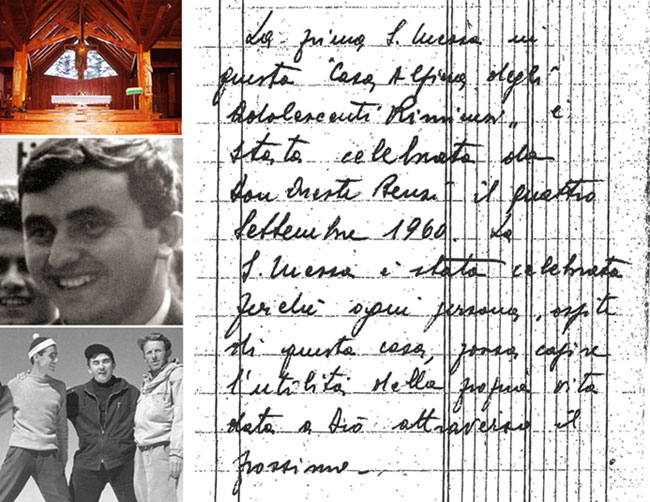 La prima S. Messa in
questa "Casa Alpina degli
Adolescenti Riminesi" è
stata celebrata da
Don Oreste Benzi il quattro
Settembre 1960. La
S. Messa è stata celebrata
perché ogni persona, ospite
di questa casa, possa capire
l'utilità della propria vita
data a Dio attraverso il
prossimo –